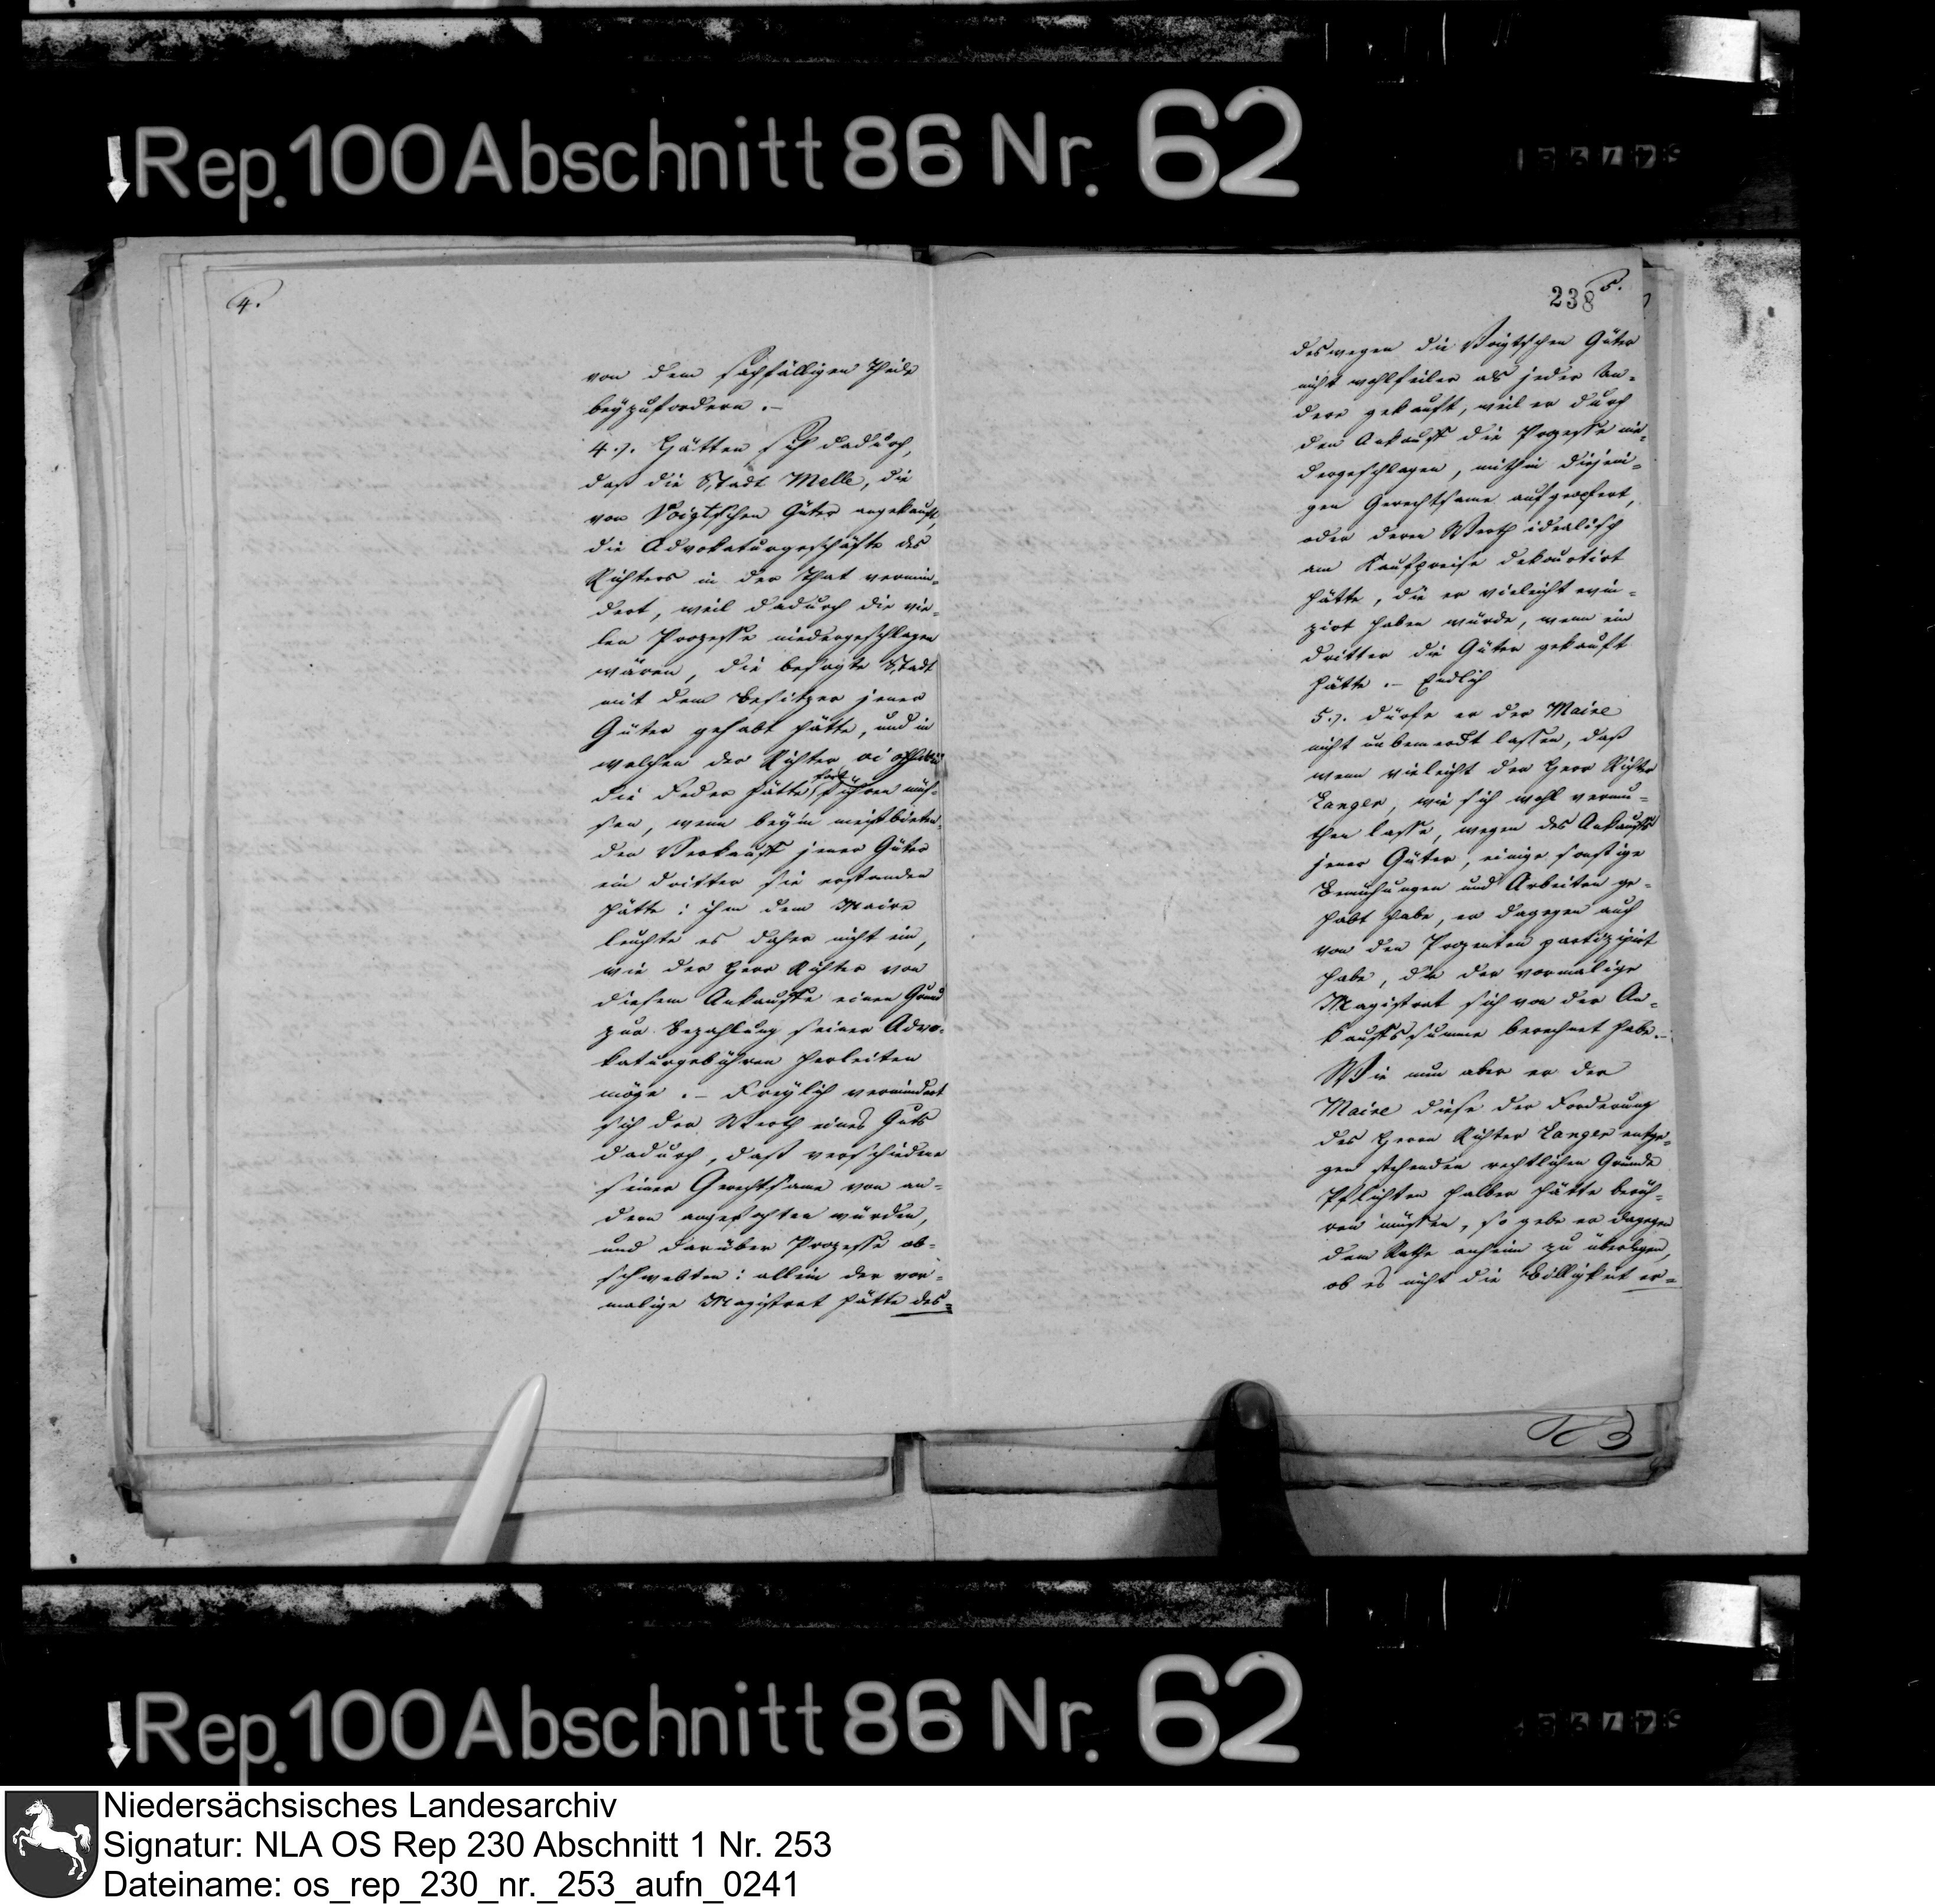 Rep. 100 Abschnitt 86 Nr. 62
4.
von dem sachfälligen Theile
beyzufordern. –
4.) Hätten sich dadurch,
daß die Stadt Melle, die
von Voigtschen Güter angekauft,
die Advokaturgeschäfte des
Richters in der That vermin-
dert, weil dadurch die vie-
len Prozesse niedergeschlagen
wären, die besagte Stadt
mit dem Besitzer jener
Güter gehabt hätte, und in
welchen der Richter vi officii
die Feder hätte fort führen müs-
sen, wenn beym meistbieten-
den Verkauf jener Güter
ein dritter sie erstanden
hätte: ihm dem Maire
leuchte es daher nicht ein,
wie der Herr Richter von
diesem Ankaufe einen Grund
zur Bezahlung seiner Advo-
katurgebühren herleiten
möge. – Freylich vermindert
sich der Werth eines Guts
dadurch, daß verschiedene
seiner Gerechtsame von an-
dern angefochten würden,
und darüber Prozesse ob-
schwebten: allein der vor-
malige Magistrat hätte des-
238
5.
deswegen die Voigtschen Güter
nicht wohlfeiler als jeder An-
dere gekauft, weil er durch
den Ankauf die Prozesse nie-
dergeschlagen, mithin diejeni-
gen Gerechtsame aufgeopfert,
oder deren Werth idealisch
am Kaufpreise dekourtirt
hätte, die er vieleicht evin-
zirt haben würde, wenn ein
dritter die Güter gekauft
hätte. – Endlich
5.) dürfe er der Maire
nicht unbemerkt lassen, daß
wenn vieleicht der Herr Richter
Langer, wie sich wohl vermu-
then lasse, wegen des Ankaufs
jener Güter, einige sonstige
Bemühungen und Arbeiten ge-
habt habe, er dagegen auch
von den Prozenten partizipirt
habe, die der vormalige
Magistrat sich von der An-
kaufssumme berechnet habe. –
Wie nun aber er der
Maire diese der Forderung
des Herrn Richter Langer entge-
gen stehenden rechtlichen Gründe
Pflichten halber hätte berüh-
ren müssen, so gebe er dagegen
dem Rathe anheim zu überlegen,
ob es nicht die Billigkeit er-
Rep. 100 Abschnitt 86 Nr. 62
Niedersächsisches Landesarchiv
Signatur: NLA OS Rep 230 Abschnitt 1 Nr. 253
Dateiname: os_rep_230_nr._253_aufn_0241